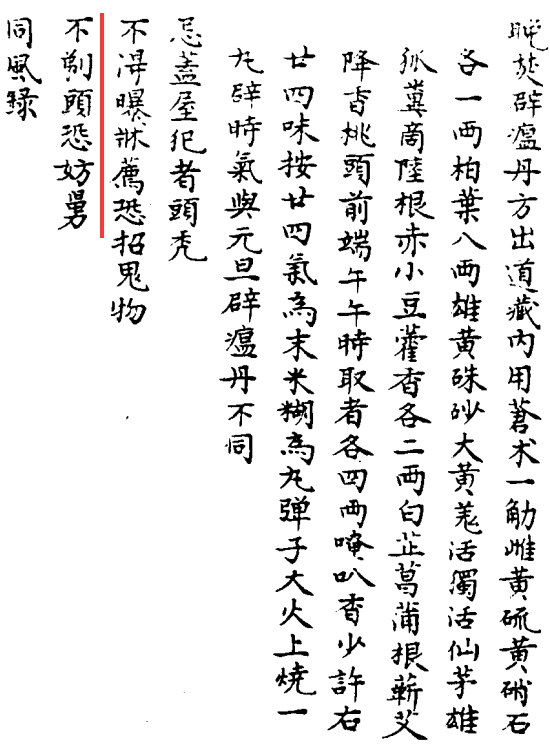 晚焚辟瘟丹方出道藏內用蒼朮一觔雌黃硫黃硝石
各一両柏葉八両雄黃硃砂大黃羗活獨活仙茅雄
狐糞商陸根赤小豆藿香各二両白芷菖蒲根蘄艾
降香桃頭前端午午時取者各四両唵叭香少許右
廿四味按廿四氣為末米糊為丸弹子大火上燒一
丸辟時氣與元旦辟瘟丹不同
忌蓋屋犯者頭禿
不淂曝牀薦恐招鬼物
不剃頭恐妨舅
同風録